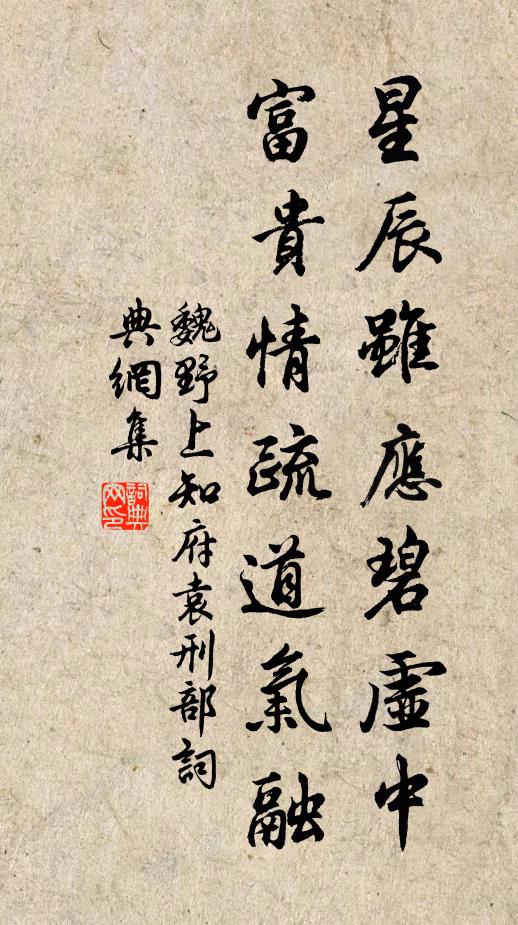 星辰雖應碧虛中
富貴情疏道氣融
魏野上知府袁刑部詞
典網集
詞典網印